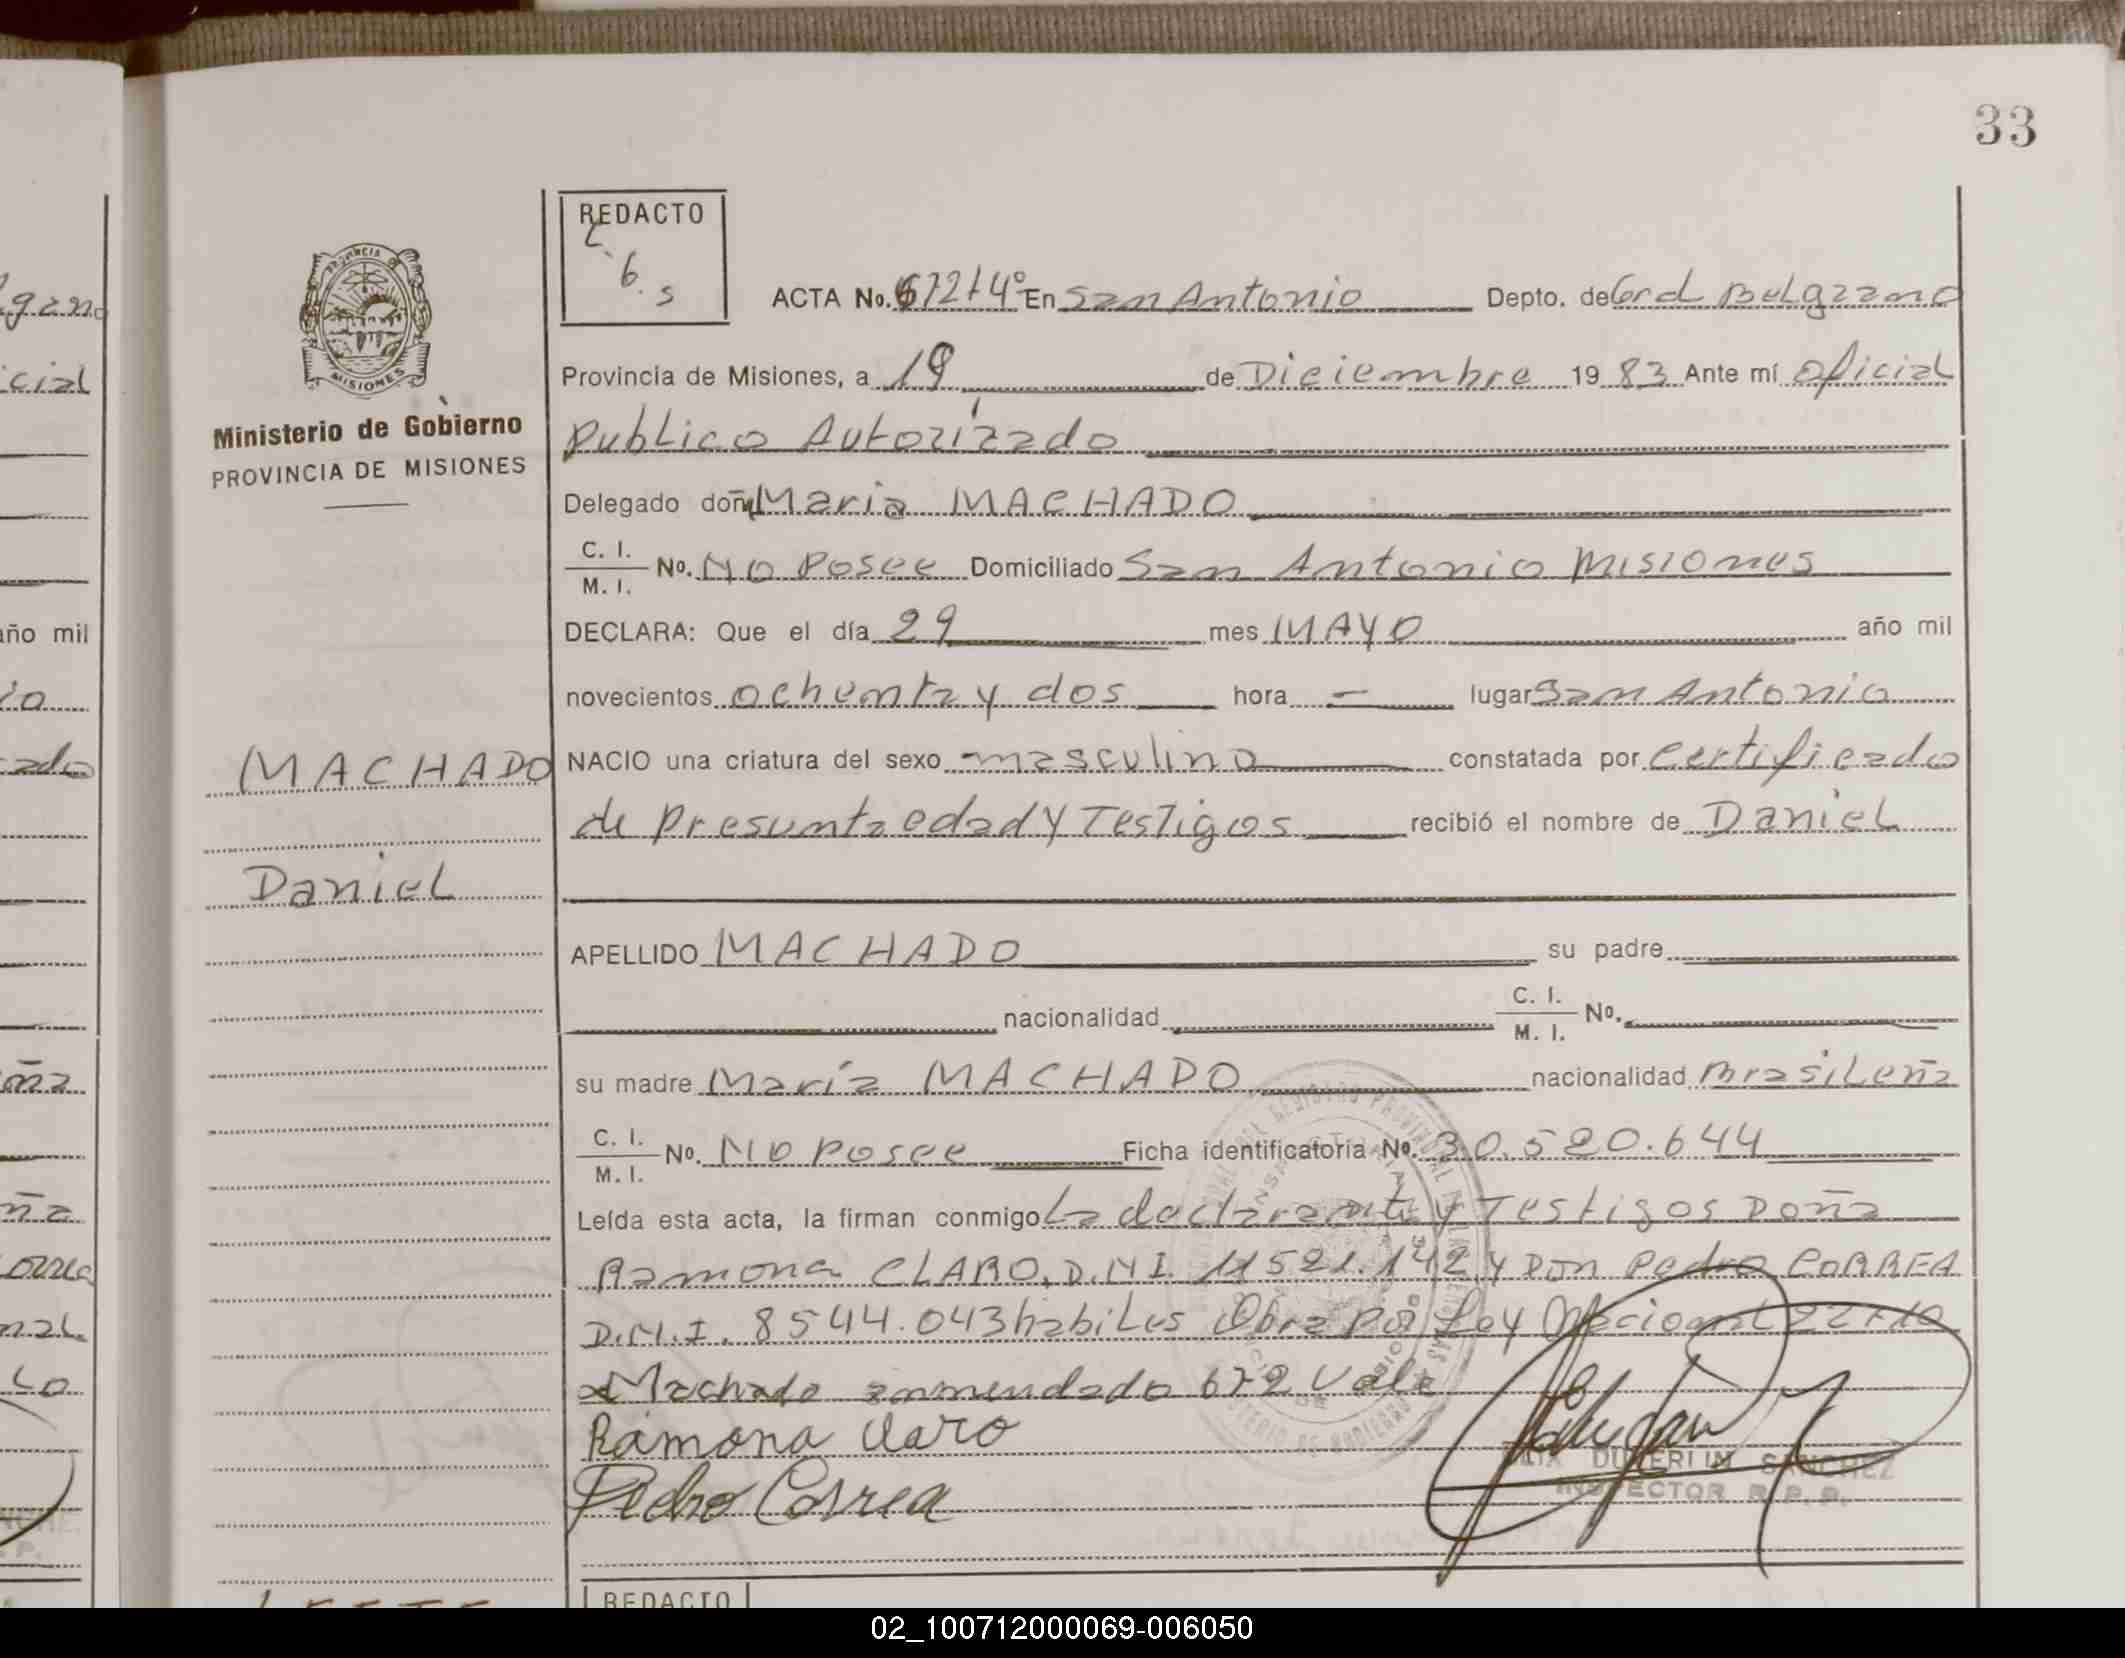 33
REDACTO
6. S
ACTA No. 672 t 4º En San Antonio Depto. de Gral Belgrano
PROVINCIA DE MISIONES
Provincia de Misiones, a 19 de Diciembre 19 83 Ante mí oficial
Ministerio de Gobierno
PROVINCIA DE MISIONES
Publico Autorizado
Delegado doña Maria MACHADO
C. I. / M. I. No. NO Posee Domiciliado San Antonio Misiones
DECLARA: Que el día 29 mes MAYO año mil
novecientos ochenta y dos hora — lugar San Antonio
MACHADO
NACIO una criatura del sexo masculino constatada por certificado
de Presunta edad y Testigos recibió el nombre de Daniel
Daniel
APELLIDO MACHADO su padre
nacionalidad C. I. / M. I. No.
su madre María MACHADO nacionalidad Brasileña
C. I. / M. I. No. NO Posee Ficha identificatoria No. 30.520.644
Leída esta acta, la firman conmigo La declarante y Testigos Doña
Ramona CLARO, D.N.I. 11521.142 y Don Pedro CORREA
D.N.I. 8544.043 habiles Obra por Ley Nacional
Machado enmendado 672 Vale
Ramona Claro
Pedro Correa
SANCHEZ
INSPECTOR R.P.P.
REDACTO
gano
icial
año mil
io
cado
orrea
02_100712000069-006050